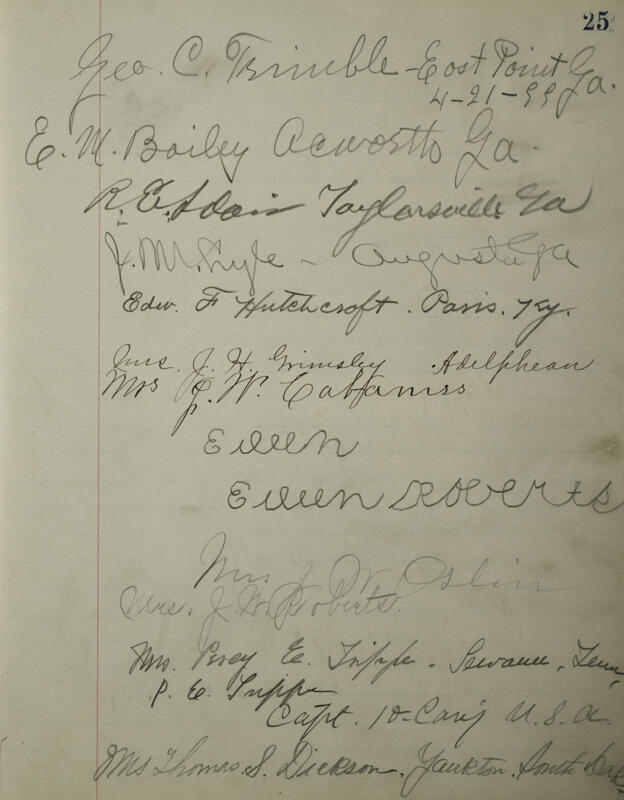 25
Geo. C. Trimble - East Point Ga.
4-21-99
E. M. Bailey Acworth Ga.
R. E. Adair Taylorsville Ga
J. M. Lyle - Augusta Ga
Edw. F Hutchcroft. Paris. Ky.
Mrs. J. H. Grimsley Adelphean
Mrs E. W. Cabaniss
Eileen
Eileen Roberts
Mrs J. W. Oslin
Mrs. J. W. Roberts.
Mrs. Percy E. Trippe - Sewanee, Tenn,
P. E. Trippe
Capt. 10-Cav'y U.S.A.
Mrs Thomas. S. Dickson. Yankton. South Dak.